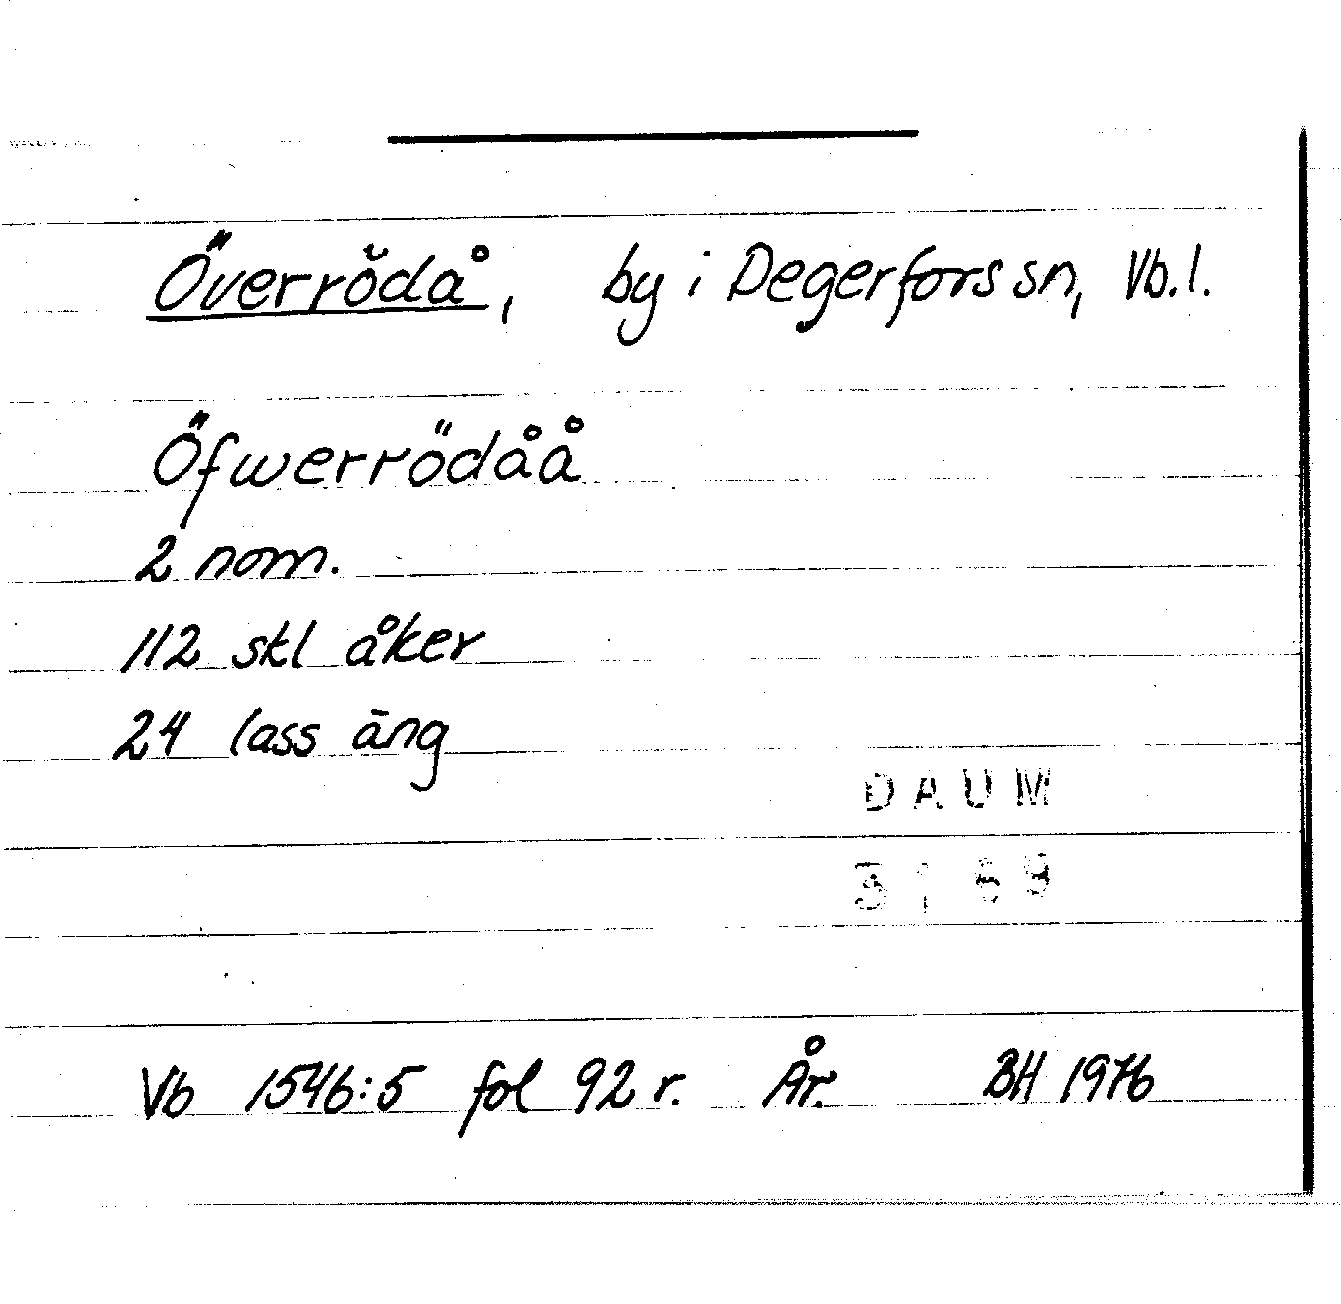 Överrödå, by i Degerfors sn, Vb.l.
Öfwerrödåå
2 nom.
112 skl åker
24 lass äng
DAUM
3169
Vb 1546:5 fol 92 r. År. BH 1976